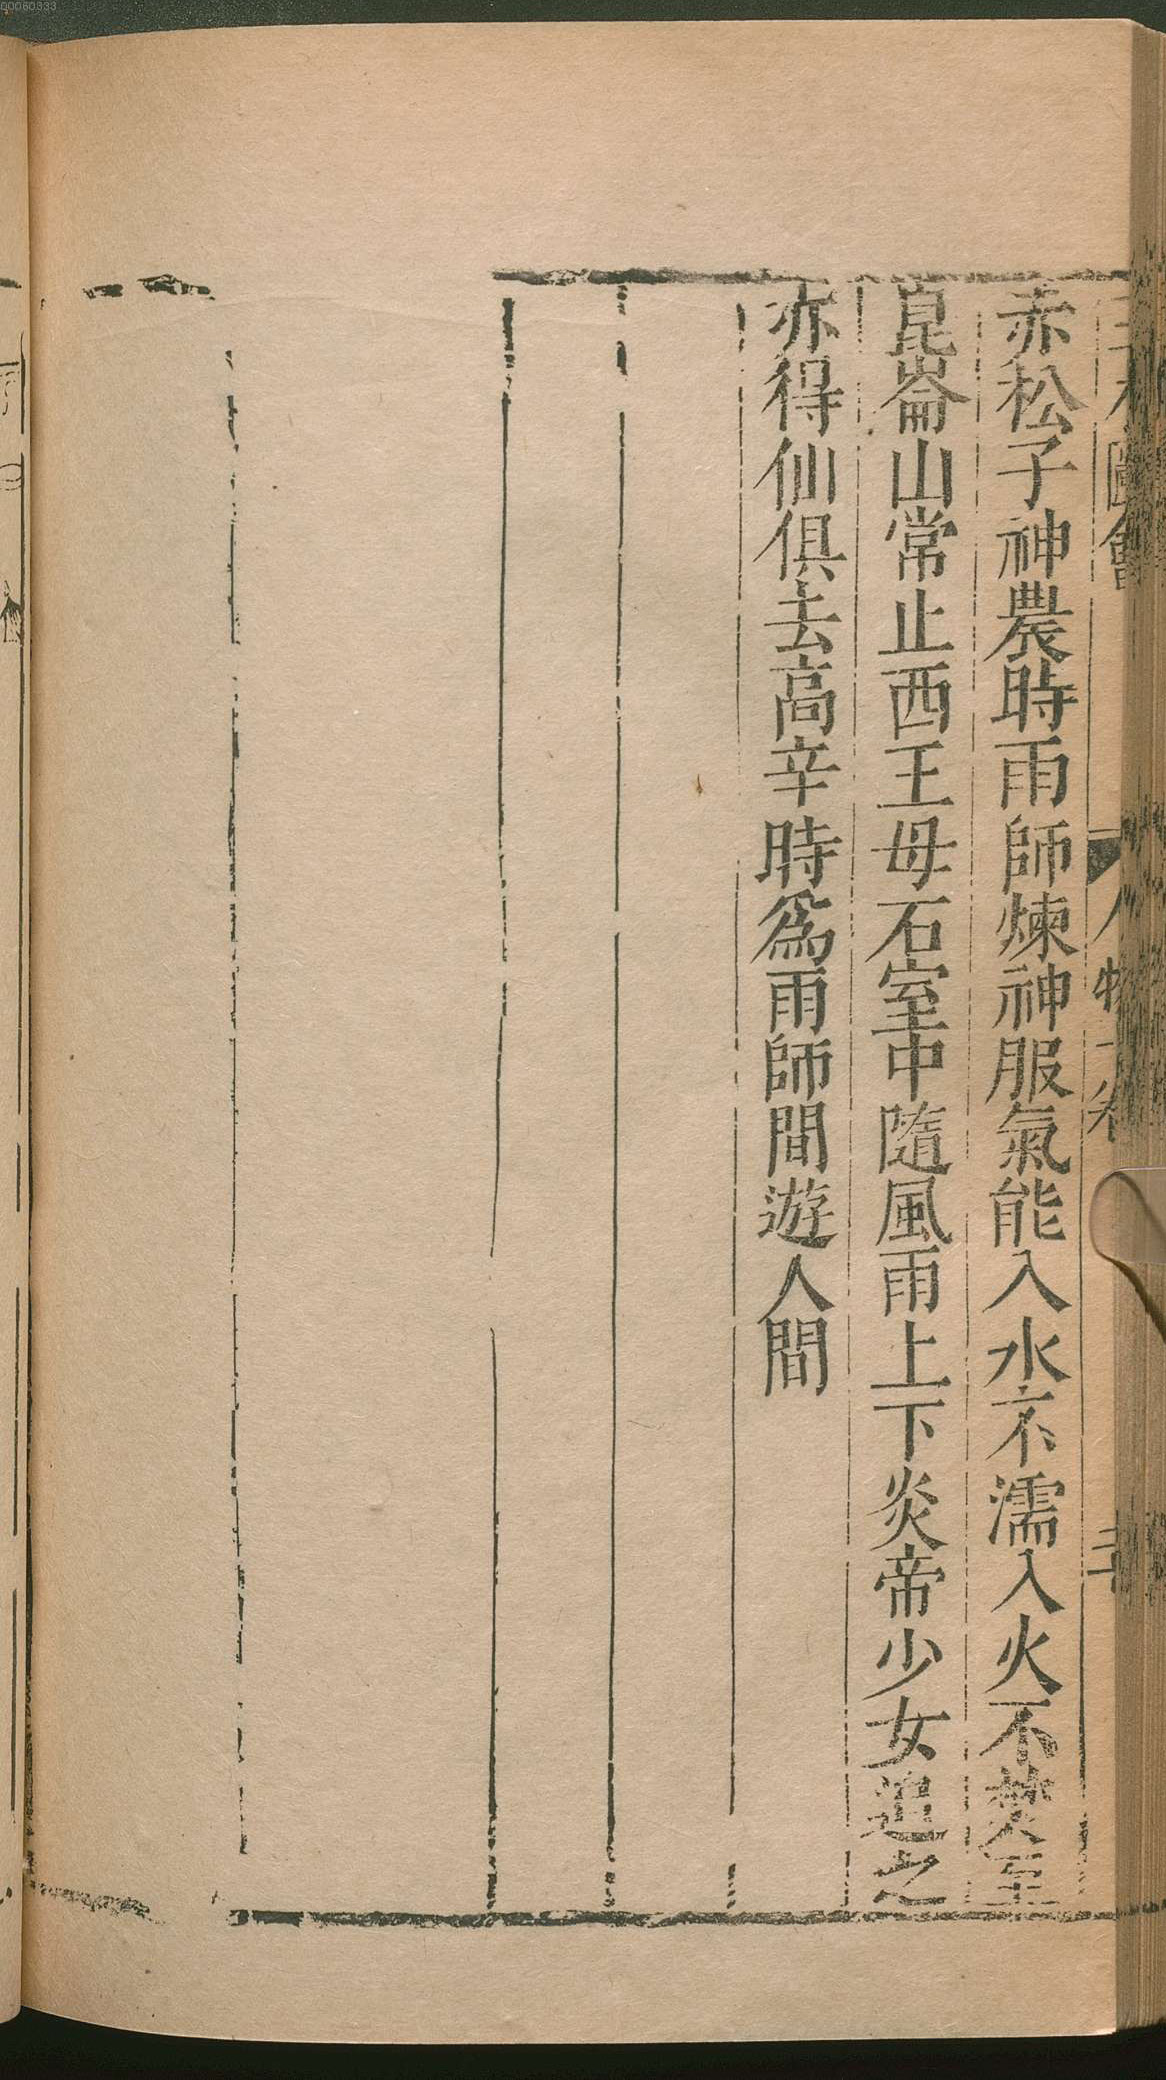 三才圖會 人物十卷 二十
赤松子神農時雨師煉神服氣能入水不濡入火不焚至
崑崙山常止西王母石室中隨風雨上下炎帝少女追之
亦得仙俱去高辛時爲雨師間遊人間
00060333